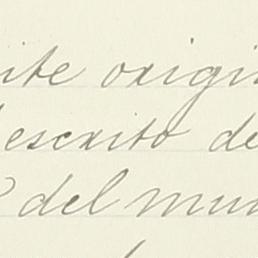 ite origin
escrito de
del mun